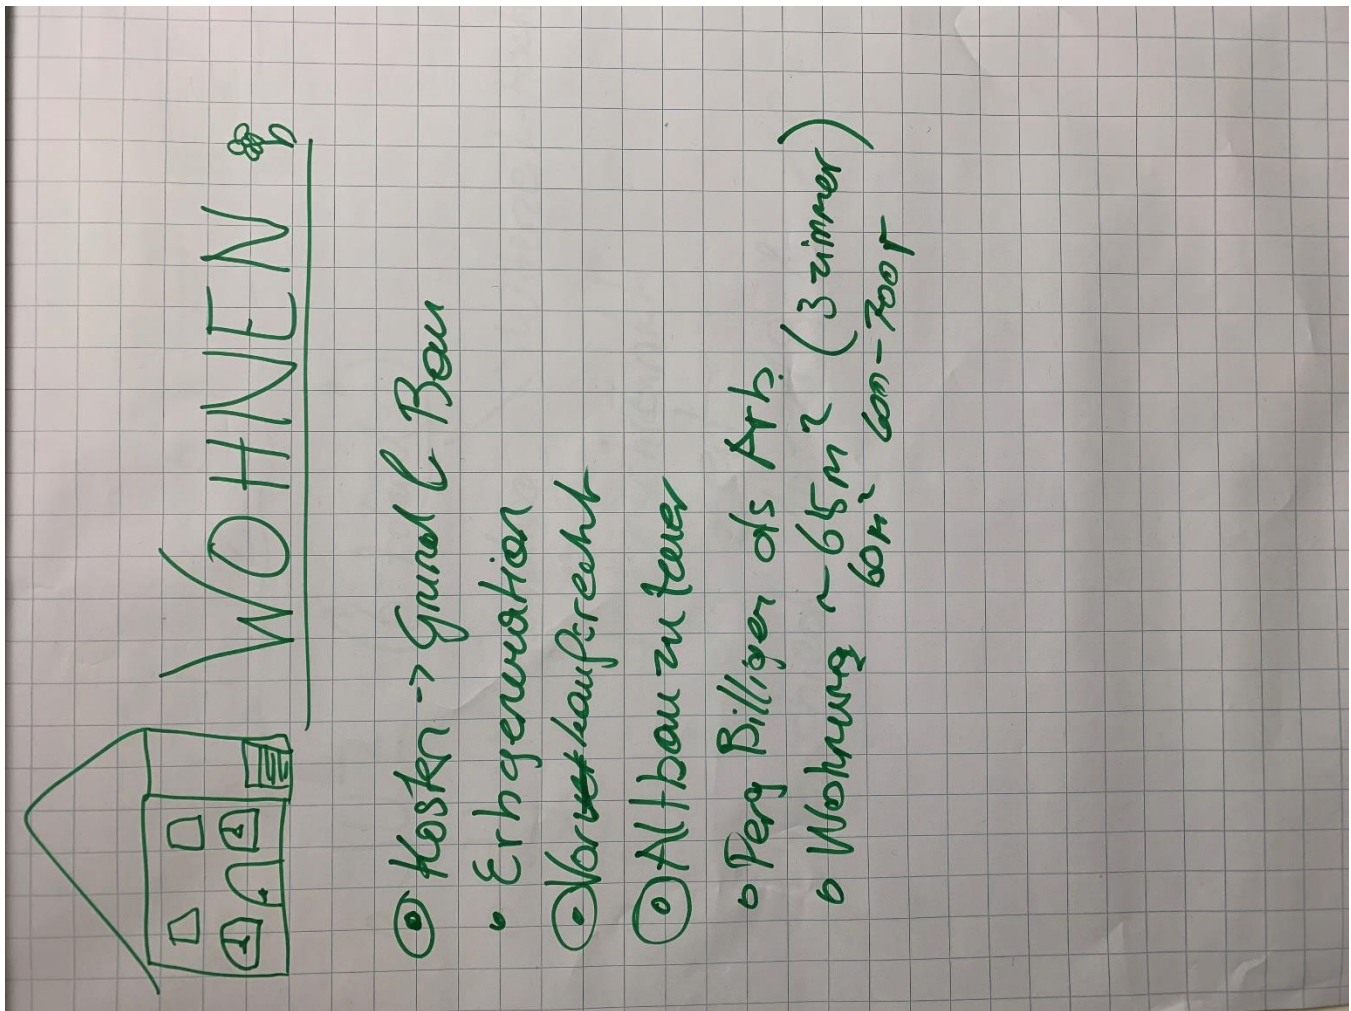 WOHNEN
Kosten -> Grund & Bau
Erbgeneration
Vorkaufsrecht
Altbau zu teuer
Perg Billiger als Arb.
Wohnung ~ 65m² (3 zimmer)
60m² 600-700,-